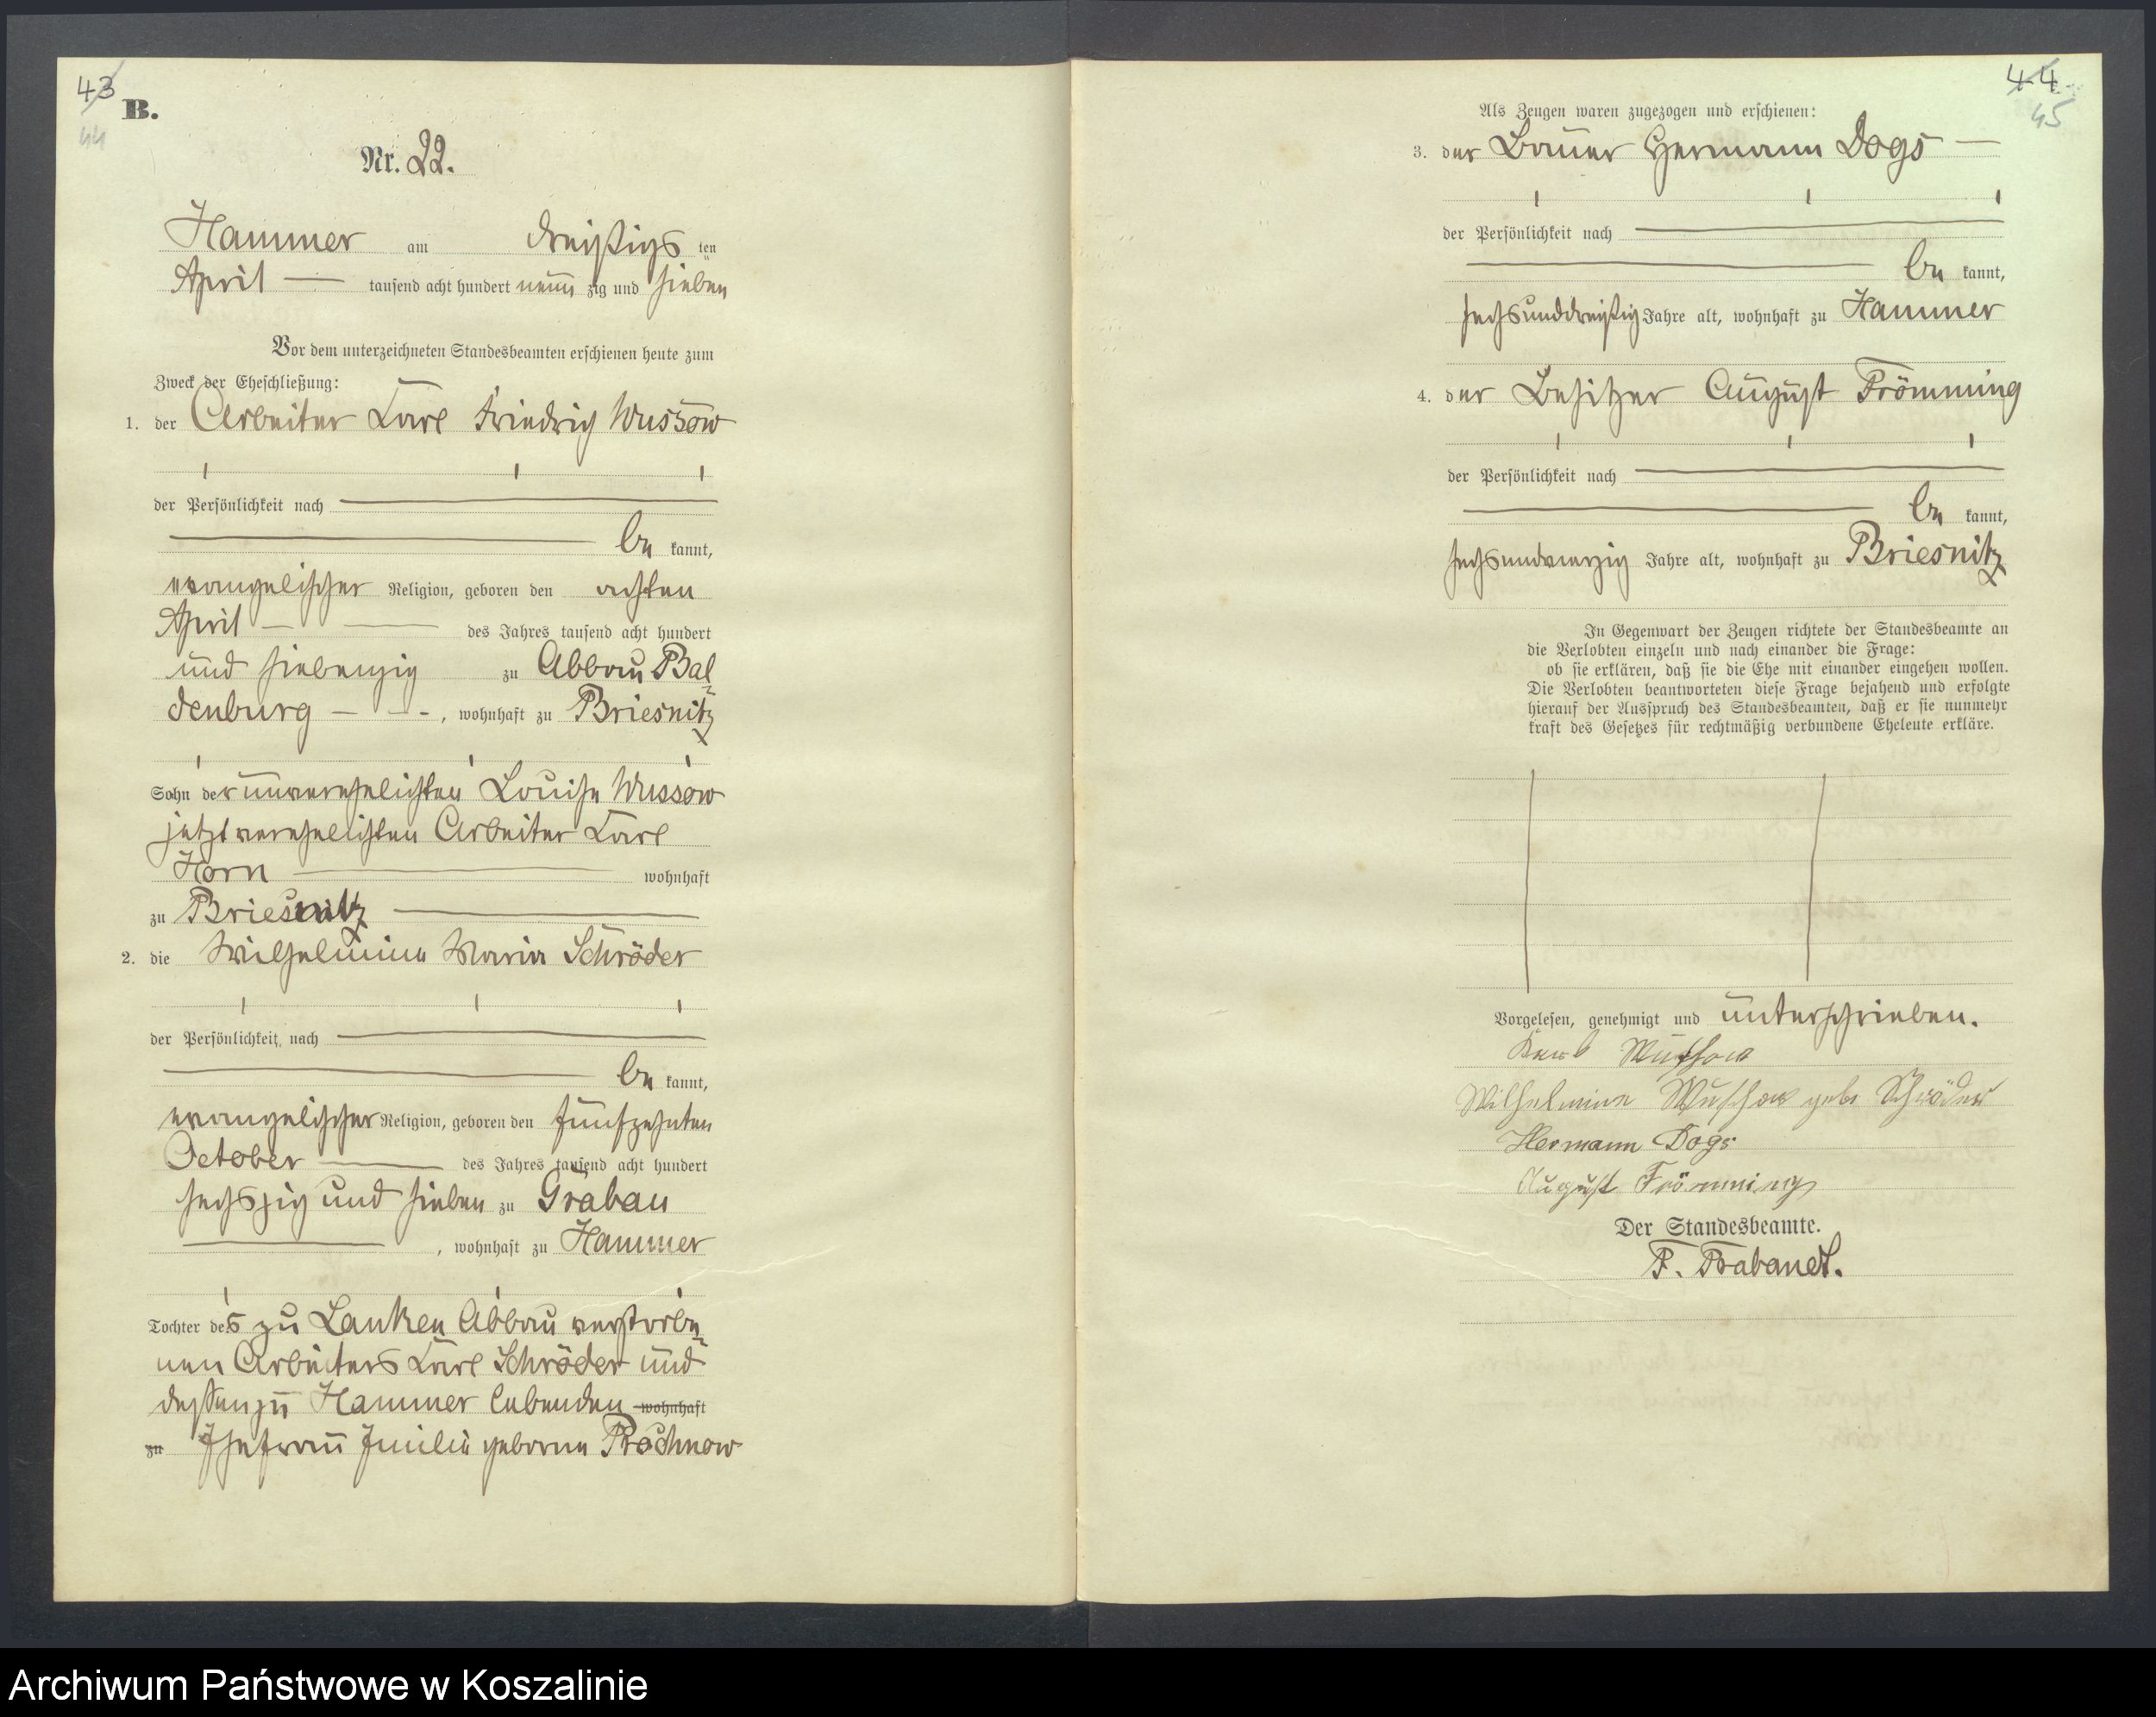 43
44
B.
Nr. 22.
Hammer am dreißigs ten
April — tausend acht hundert neun zig und sieben
Vor dem unterzeichneten Standesbeamten erschienen heute zum
Zweck der Eheschließung:
1. der Arbeiter Carl Friedrich Wussow
der Persönlichkeit nach
be kannt,
evangelischer Religion, geboren den achten
April — des Jahres tausend acht hundert
und siebenzig zu Abbau Bal⸗
denburg — - - , wohnhaft zu Briesnitz
Sohn der unverehelichten Louise Wussow
jetzt verehelichten Arbeiter Carl
Horn — wohnhaft
zu Briesnitz —
2. die Wilhelmine Marie Schröder
der Persönlichkeit nach
be kannt,
evangelischer Religion, geboren den fünfzehnten
October — des Jahres tausend acht hundert
sechszig und sieben zu Grabau
— , wohnhaft zu Hammer
Tochter des zu Lanken Abbau verstorbe⸗
nen Arbeiters Carl Schröder und
dessen zu Hammer lebenden wohnhaft
zu Ehefrau Emilie geborne Prochnow
44
45
Als Zeugen waren zugezogen und erschienen:
3. der Bauer Hermann Dogs —
der Persönlichkeit nach
be kannt,
sechsunddreißig Jahre alt, wohnhaft zu Hammer
4. der Besitzer August Frömming
der Persönlichkeit nach
be kannt,
sechsundvierzig Jahre alt, wohnhaft zu Briesnitz
In Gegenwart der Zeugen richtete der Standesbeamte an
die Verlobten einzeln und nach einander die Frage:
ob sie erklären, daß sie die Ehe mit einander eingehen wollen.
Die Verlobten beantworteten diese Frage bejahend und erfolgte
hierauf der Ausspruch des Standesbeamten, daß er sie nunmehr
kraft des Gesetzes für rechtmäßig verbundene Eheleute erkläre.
Vorgelesen, genehmigt und unterschrieben.
Karl Wussow
Wilhelmine Wussow geb. Schröder
Hermann Dogs
August Frömming
Der Standesbeamte.
F. Frabandt.
Archiwum Państwowe w Koszalinie